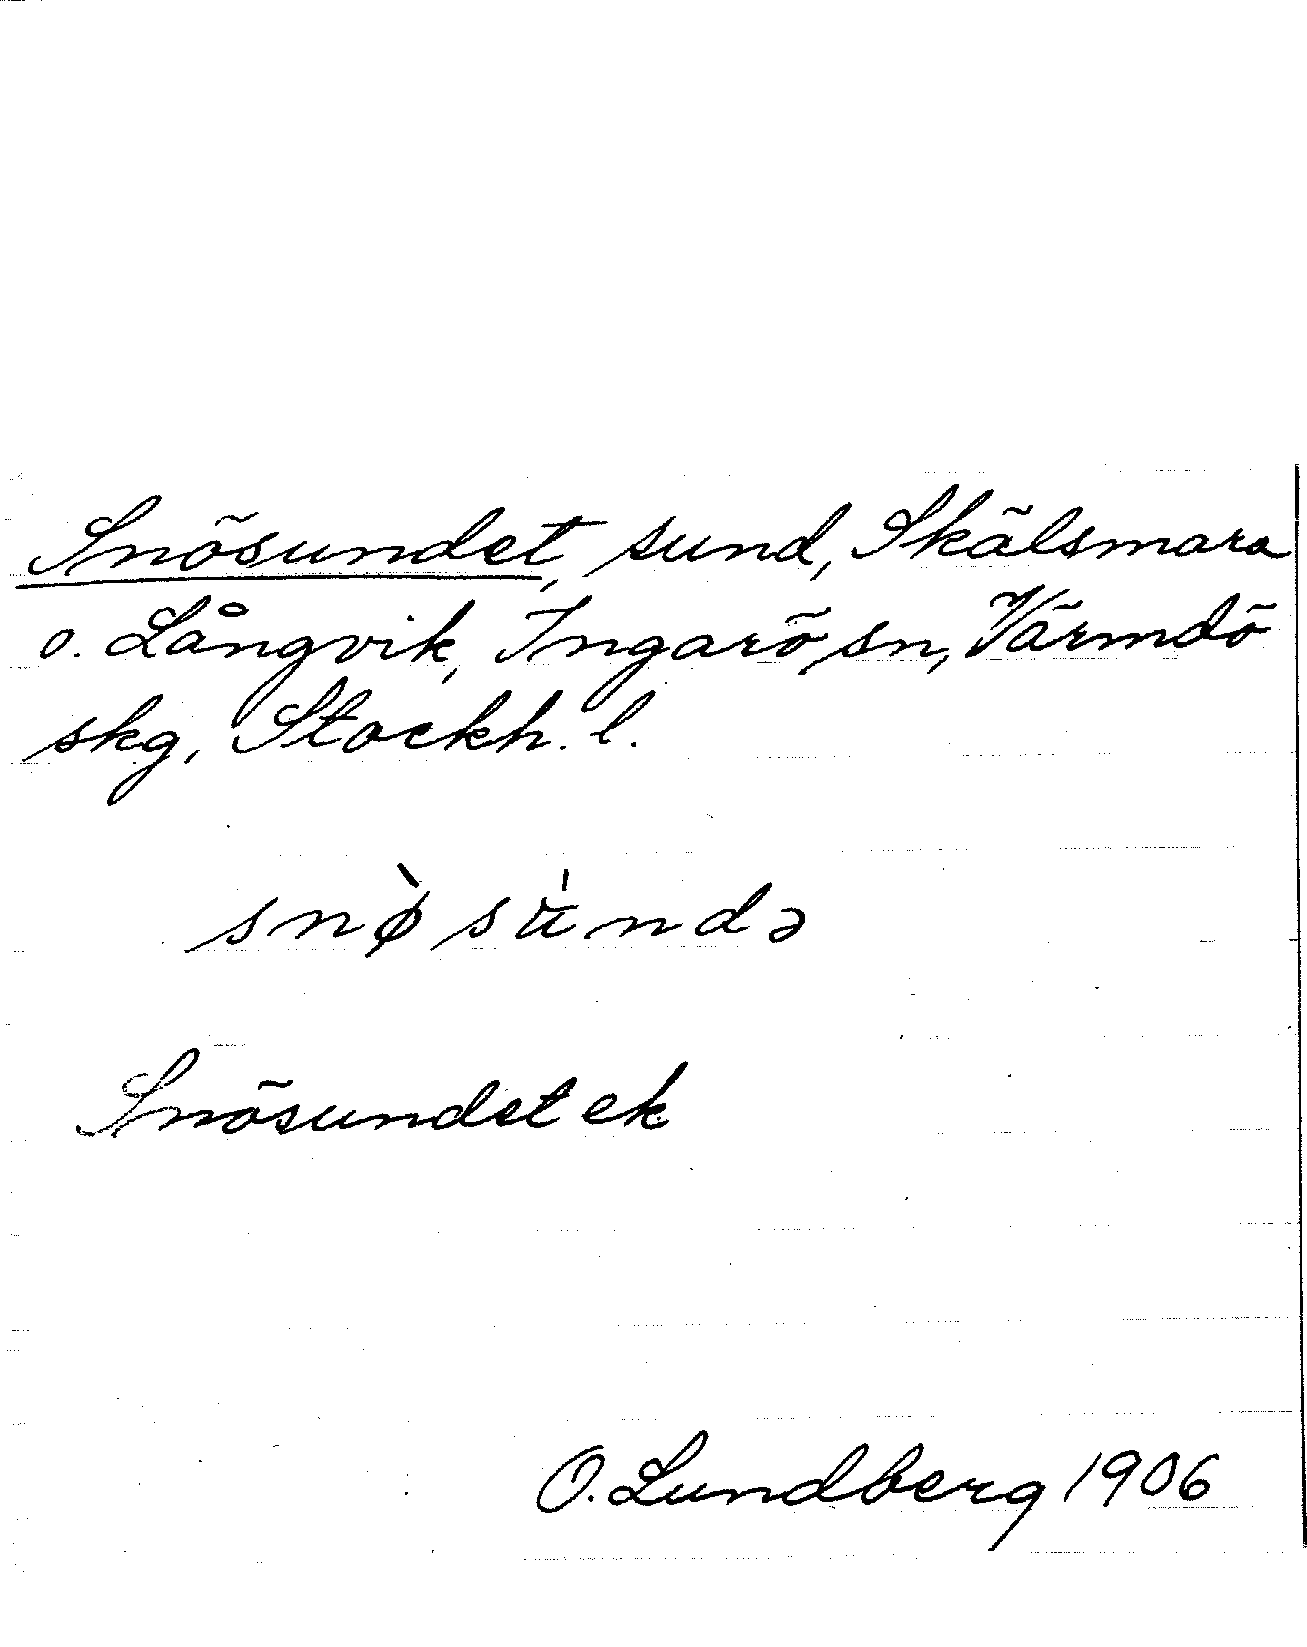 Snösundet, sund, Skälsmara
o. Långvik, Ingarö sn, Värmdö
skg, Stockh. l.
snø̀su̇ndə
Snösundet ek
O. Lundberg 1906